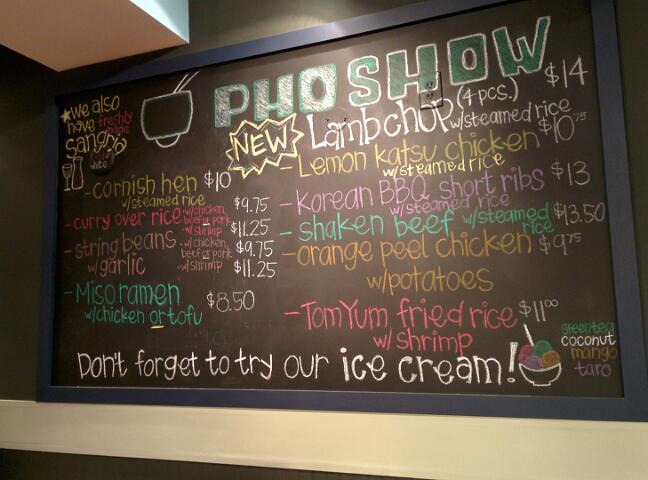 PHO SHOW
we also
have freshly
made
sangria
white
NEW
Lamb chop (4 pcs.) $14
w/steamed rice
- Lemon katsu chicken $10.75
w/steamed rice
- Korean BBQ short ribs $13
w/steamed rice
- shaken beef w/steamed $13.50
rice
- orange peel chicken $9.75
w/potatoes
- Tom Yum fried rice $11.00
w/shrimp
- cornish hen $10
w/steamed rice
- curry over rice • w/chicken, $9.75
beef or pork
• w/shrimp $11.25
- string beans • w/chicken, $9.75
w/garlic beef or pork
• w/shrimp $11.25
- Miso ramen $8.50
w/chicken or tofu
Don't forget to try our ice cream!
green tea
coconut
mango
taro